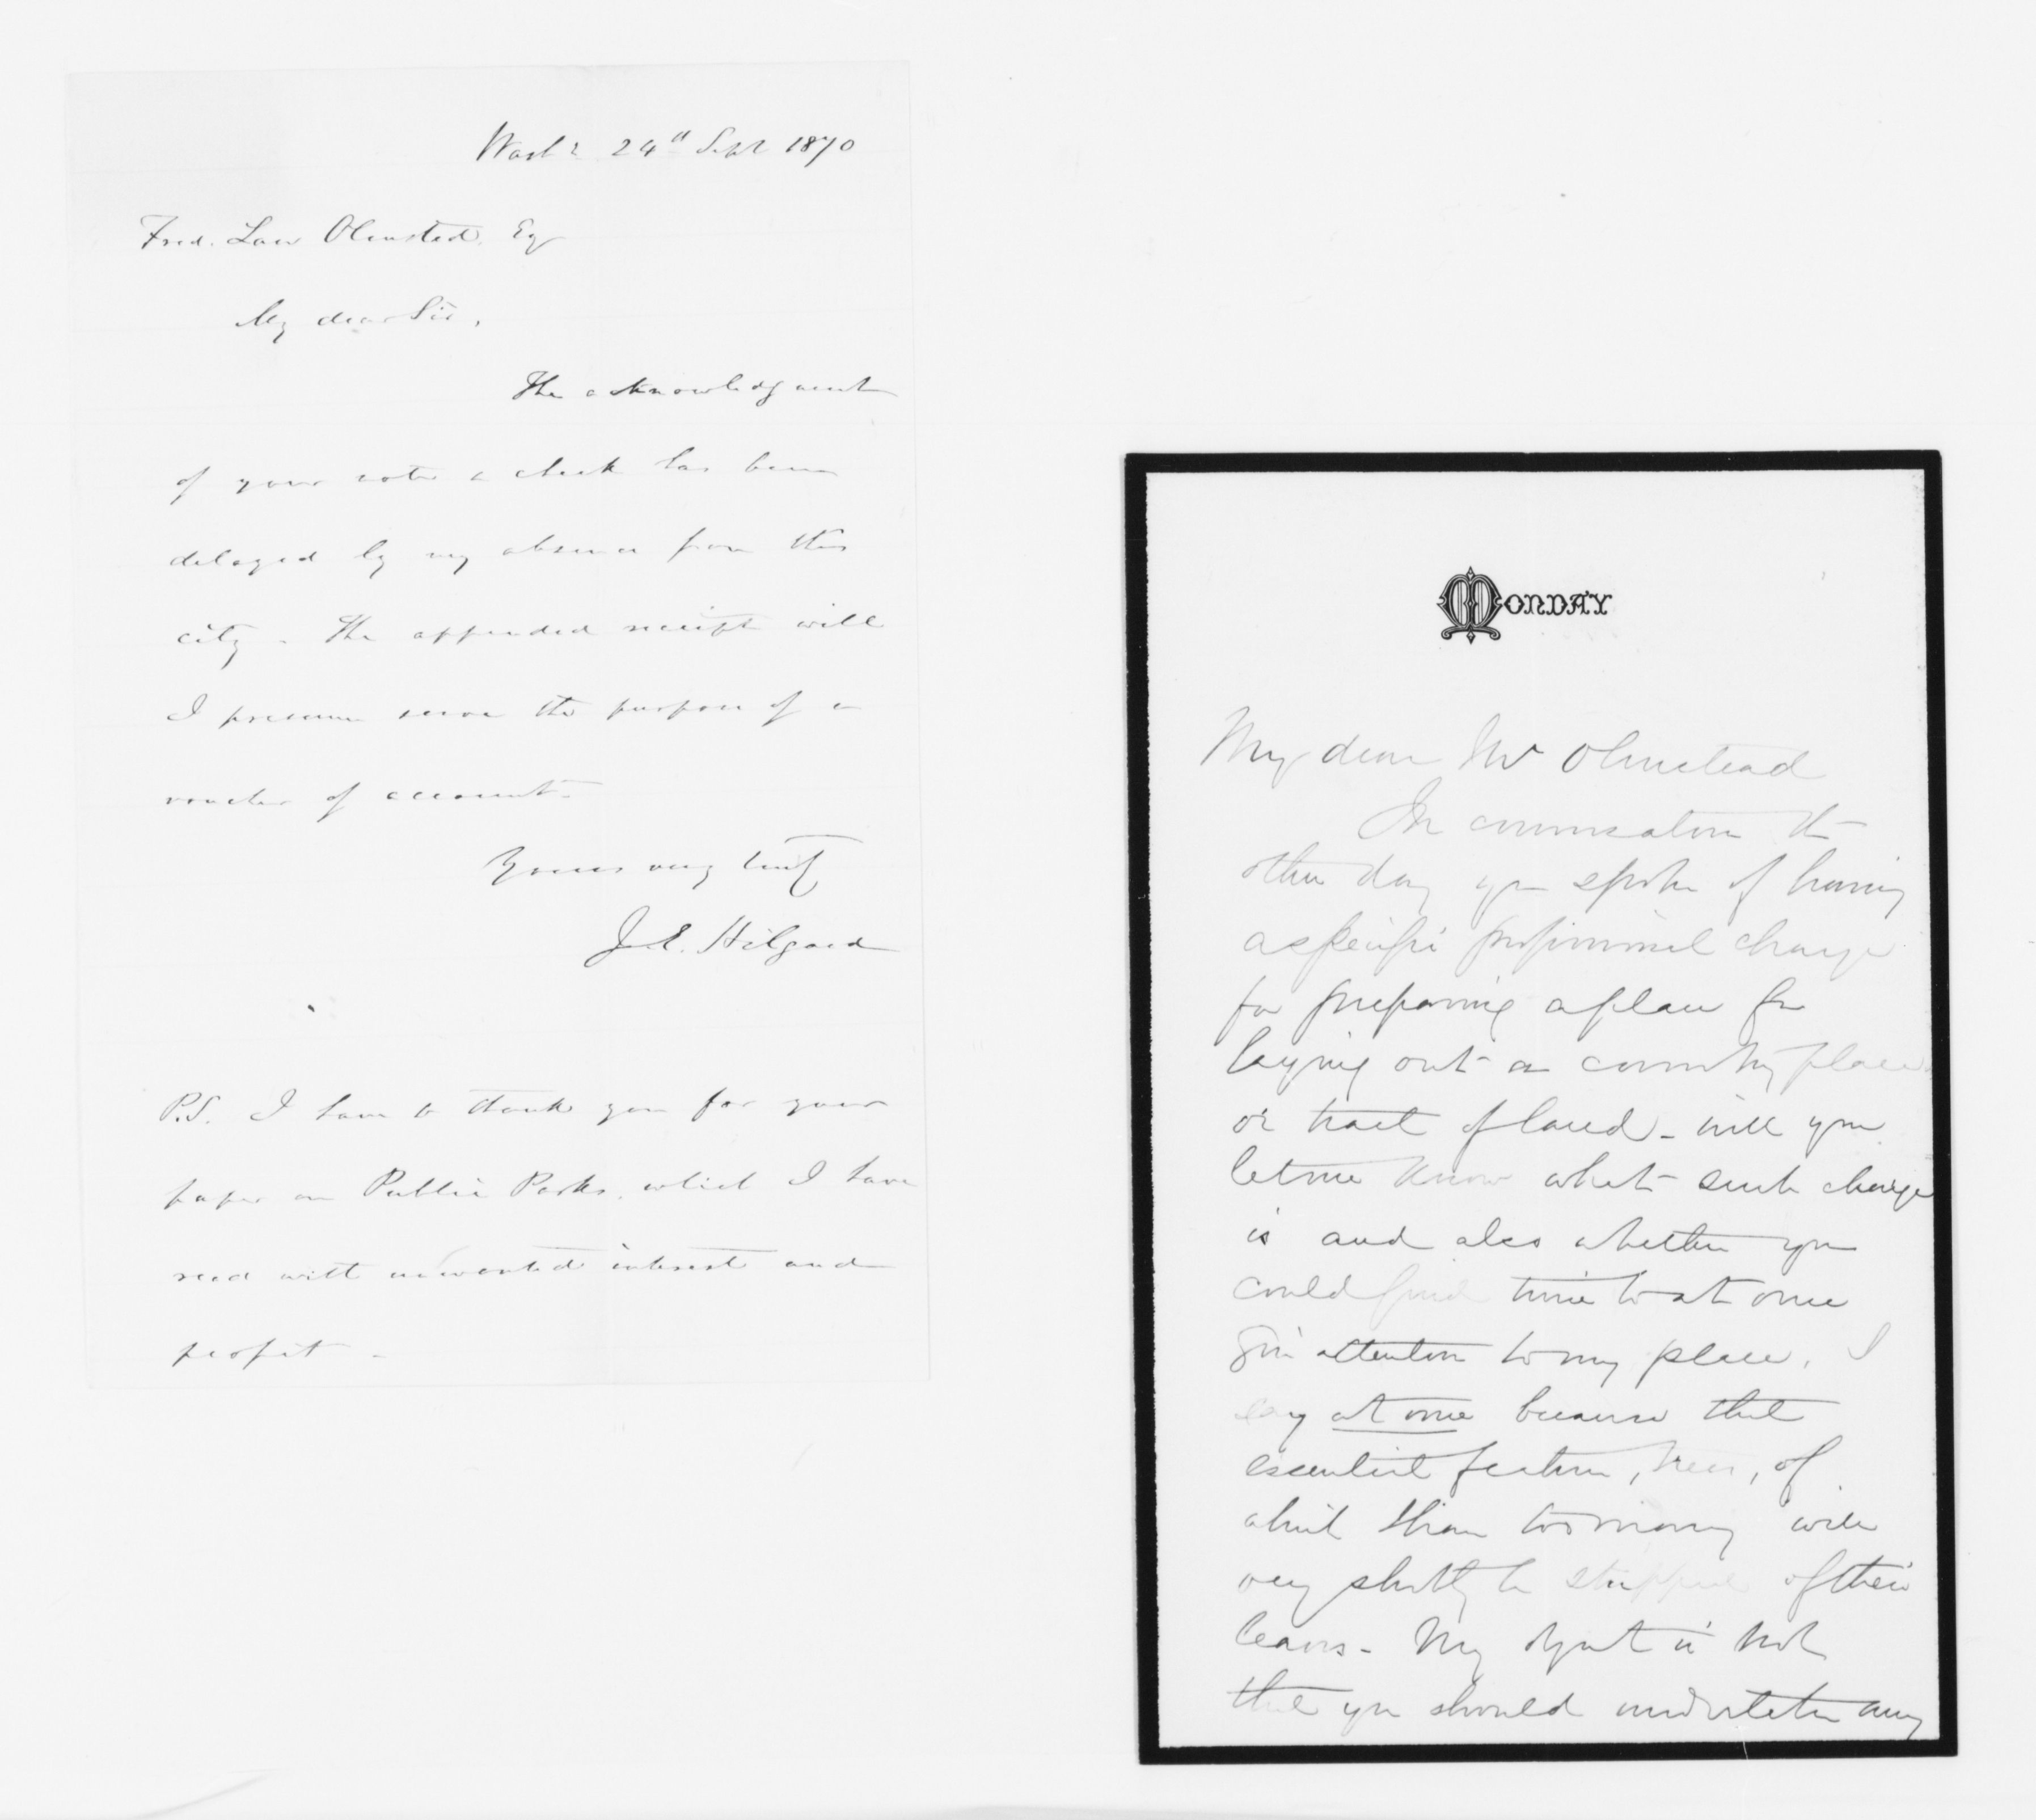 Washn 24th Sept 1870
Fred. Law Olmsted, Esq
My dear Sir,
The acknowledgment
of your note & check has been
delayed by my absence from this
city. The appended receipt will
I presume serve the purpose of a
voucher of account.
Yours very truly
J. E. Hilgard
P.S. I have to thank you for your
paper on Public Parks, which I have
read with unwonted interest and
profit –
MONDAY
My dear Mr Olmstead
In conversation the
other day you spoke of having
a specific professional charge
for preparing a plan for
laying out a country place
or tract of land – will you
let me know what such charge
is and also whether you
could find time to at once
give attention to my place. I
say at once because that
essential feature, trees, of
which there too many will
very shortly be stripped of their
leaves – My object is not
that you should undertake any